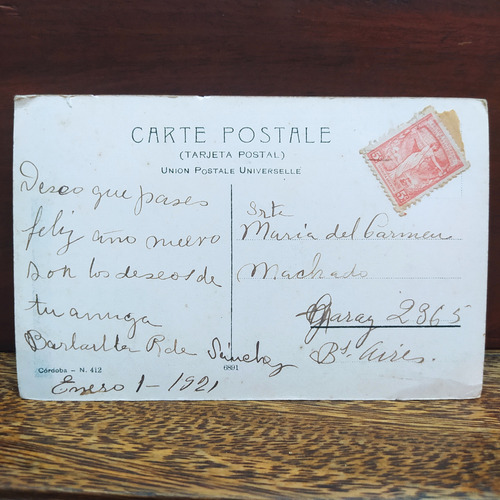 CARTE POSTALE
(TARJETA POSTAL)
UNION POSTALE UNIVERSELLE
Deseo que pases
feliz año nuevo
son los deseos de
tu amiga
R de Sánchez
Enero 1 - 1921
Srta
Maria del Carmen
Machado
Garay 2965
Bs. Aires.
Córdoba - N. 412
6891
5
5